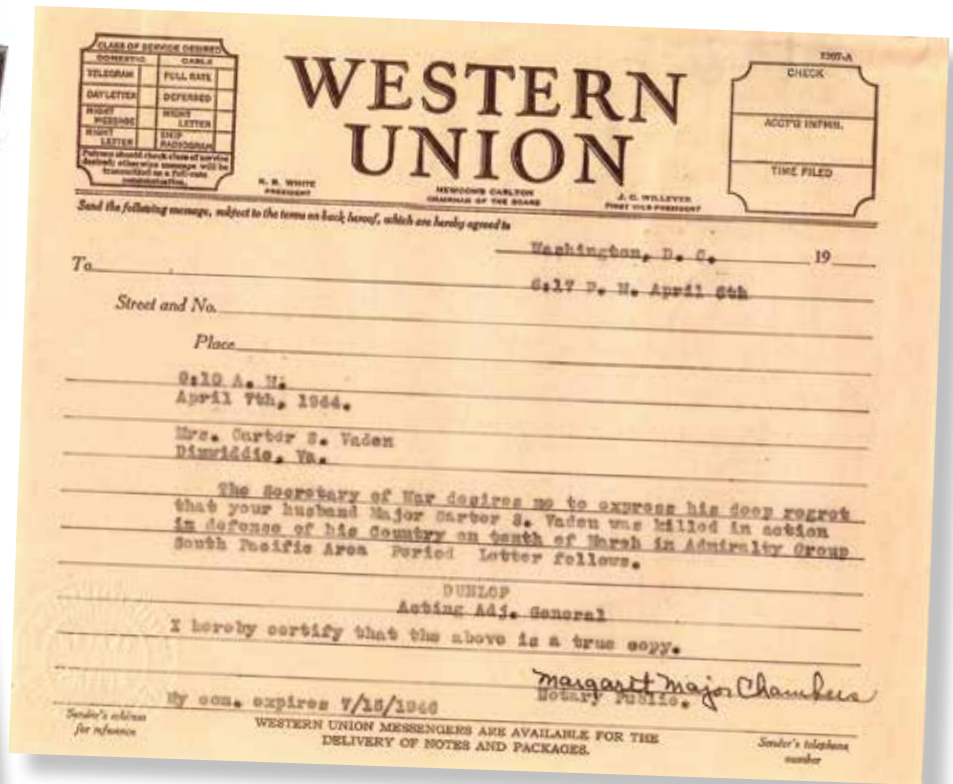 CLASS OF SERVICE DESIRED
DOMESTIC CABLE
TELEGRAM FULL RATE
DAY LETTER DEFERRED
NIGHT MESSAGE NIGHT LETTER
NIGHT LETTER SHIP RADIOGRAM
Patrons should check class of service
desired; otherwise message will be
transmitted as a full-rate
communication.
WESTERN
UNION
1207-A
CHECK
ACCT'G INFMN.
TIME FILED
R. B. WHITE
PRESIDENT
NEWCOMB CARLTON
CHAIRMAN OF THE BOARD
J. C. WILLEVER
FIRST VICE-PRESIDENT
Send the following message, subject to the terms on back hereof, which are hereby agreed to
Washington, D. C. 19
To
6:17 P. M. April 6th
Street and No.
Place
9:10 A. M.
April 7th, 1944.
Mrs. Carter S. Vaden
Dinwiddie, Va.
The Secretary of War desires me to express his deep regret
that your husband Major Carter S. Vaden was killed in action
in defense of his Country on tenth of March in Admiralty Group
South Pacific Area Period Letter follows.
DUNLOP
Acting Adj. General
I hereby certify that the above is a true copy.
Margarett Major Chambers
Notary Public.
My com. expires 7/15/1946
Sender's address
for reference
WESTERN UNION MESSENGERS ARE AVAILABLE FOR THE
DELIVERY OF NOTES AND PACKAGES.
Sender's telephone
number